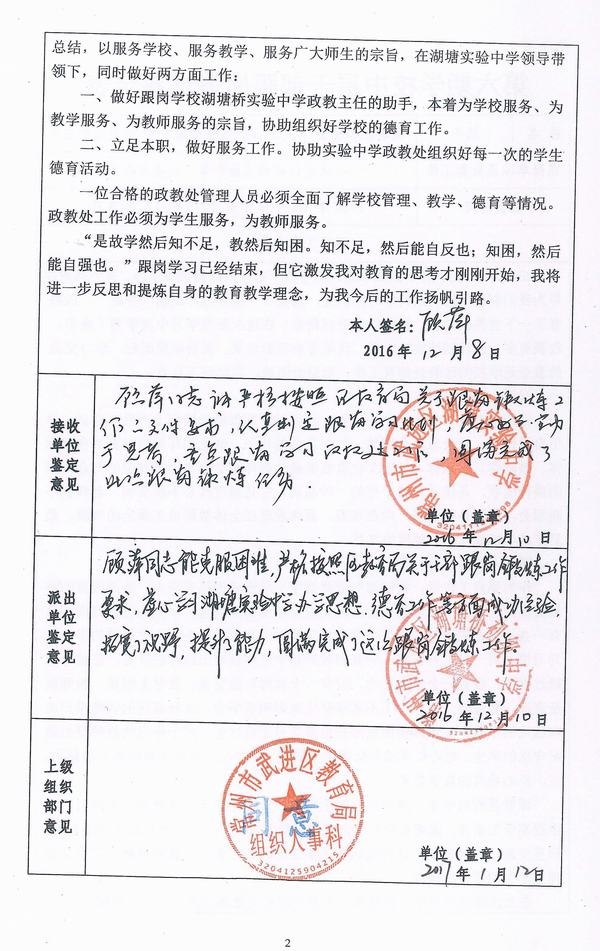 总结，以服务学校、服务教学、服务广大师生的宗旨，在湖塘实验中学领导带
领下，同时做好两方面工作：
一、做好跟岗学校湖塘桥实验中学政教主任的助手，本着为学校服务、为
教学服务、为教师服务的宗旨，协助组织好学校的德育工作。
二、立足本职，做好服务工作。协助实验中学政教处组织好每一次的学生
德育活动。
一位合格的政教处管理人员必须全面了解学校管理、教学、德育等情况。
政教处工作必须为学生服务，为教师服务。
“是故学然后知不足，教然后知困。知不足，然后能自反也；知困，然后
能自强也。”跟岗学习已经结束，但它激发我对教育的思考才刚刚开始，我将
进一步反思和提炼自身的教育教学理念，为我今后的工作扬帆引路。
本人签名：顾萍
2016年 12月 8日
接收
单位
鉴定
意见
顾萍同志能严格按照区教育局关于跟岗锻炼工
作文件要求，认真制定跟岗学习计划，
于思考，跟岗学习，圆满完成了
此次跟岗锻炼任务．
常州市武进区湖塘实验中学
单位（盖章）
2016年12月10日
派出
单位
鉴定
意见
顾萍同志能克服困难，严格按照区教育局关于干部跟岗锻炼工作
要求，虚心学习湖塘实验中学办学思想、德育工作等方面成功经验，
拓宽了视野，提升了能力，圆满完成了这次跟岗锻炼工作。
常州市武进区中学
单位（盖章）
2016年12月10日
上级
组织
部门
意见
常州市武进区教育局
同意
组织人事科
3204125904215
单位（盖章）
2017年1月12日
2